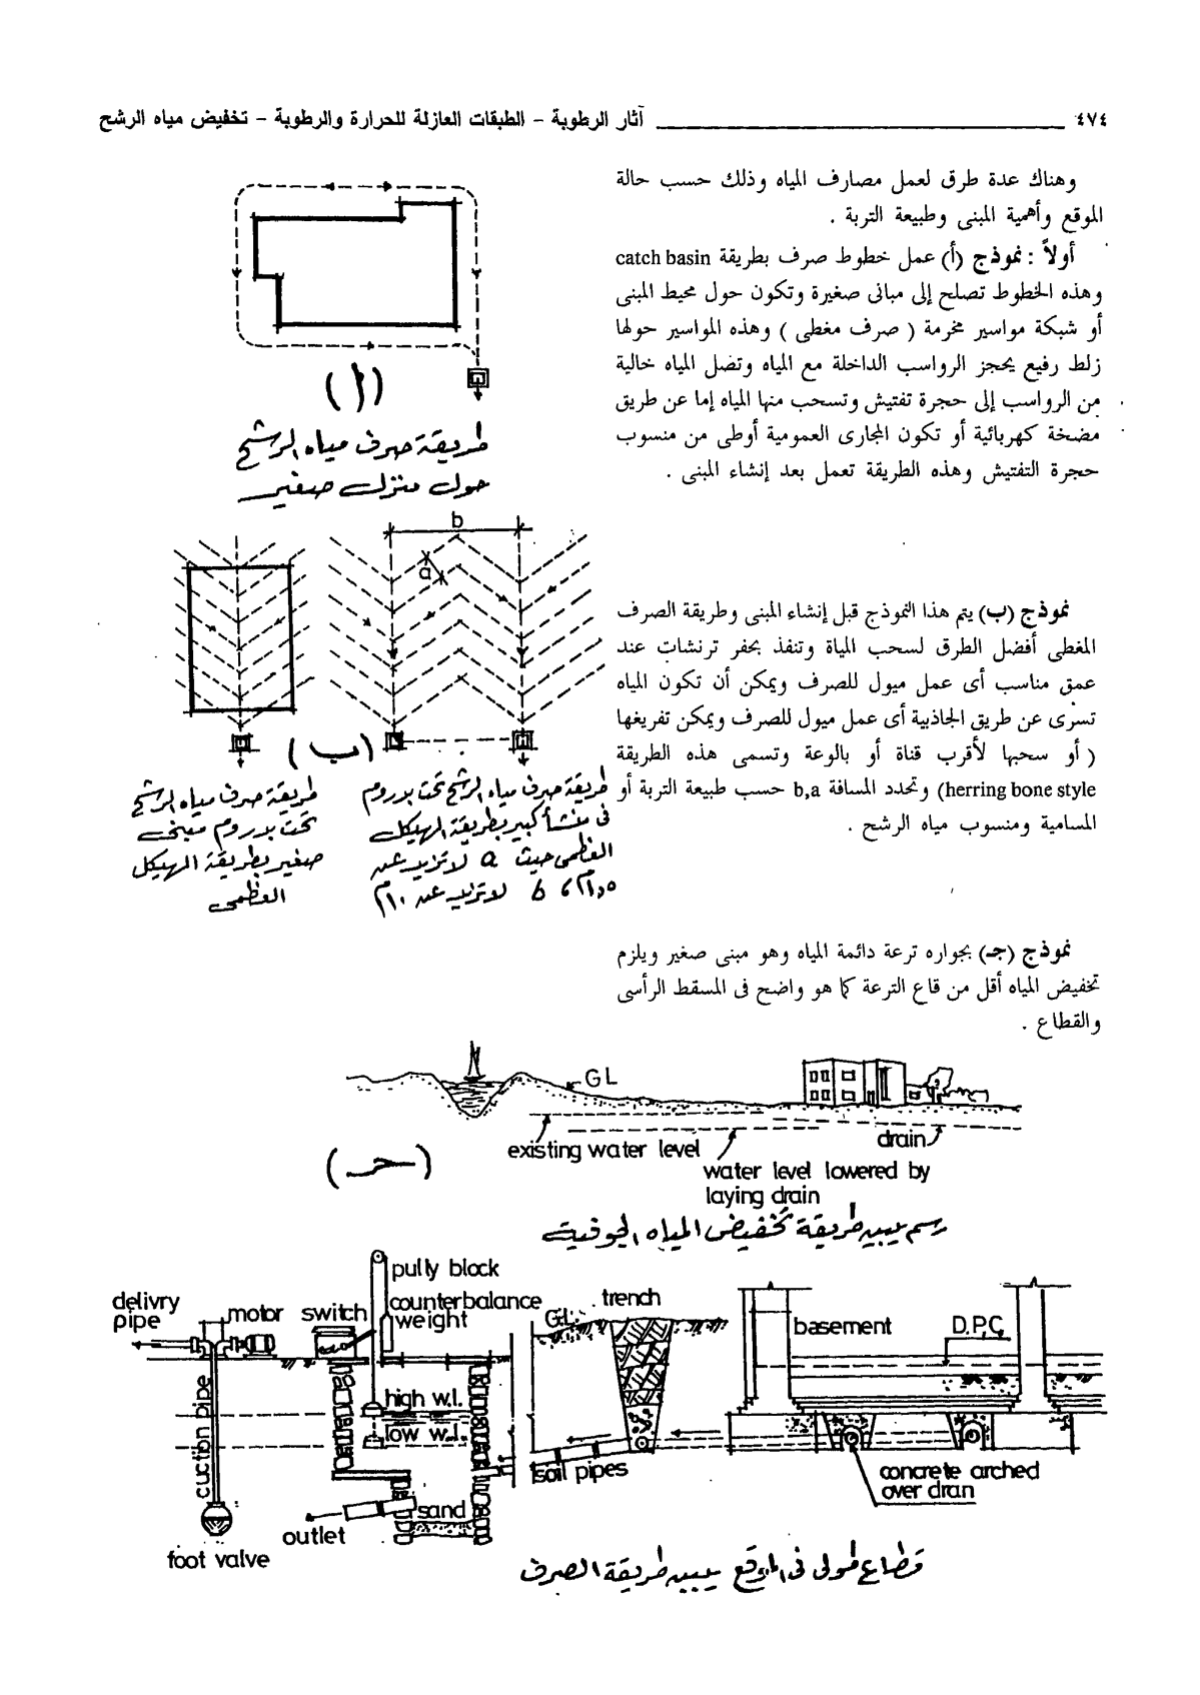 ٤٧٤ آثار الرطوبة – الطبقات العازلة للحرارة والرطوبة – تخفيض مياه الرشح
وهناك عدة طرق لعمل مصارف المياه وذلك حسب حالة
الموقع وأهمية المبنى وطبيعة التربة .
أولاً : نموذج (أ) عمل خطوط صرف بطريقة catch basin
وهذه الخطوط تصلح إلى مبانى صغيرة وتكون حول محيط المبنى
أو شبكة مواسير مخرمة ( صرف مغطى ) وهذه المواسير حولها
زلط رفيع يحجز الرواسب الداخلة مع المياه وتضل المياه خالية
من الرواسب إلى حجرة تفتيش وتسحب منها المياه إما عن طريق
مضخة كهربائية أو تكون المجارى العمومية أوطى من منسوب
حجرة التفتيش وهذه الطريقة تعمل بعد إنشاء المبنى .
(أ)
طريقة صرف مياه الرشح
حول منزل صغير
نموذج (ب) يتم هذا النموذج قبل إنشاء المبنى وطريقة الصرف
المغطى أفضل الطرق لسحب المياة وتنفذ بحفر ترنشات عند
عمق مناسب أى عمل ميول للصرف ويمكن أن تكون المياه
تسرى عن طريق الجاذبية أى عمل ميول للصرف ويمكن تفريغها
( أو سحبها لأقرب قناة أو بالوعة وتسمى هذه الطريقة
herring bone style) وتحدد المسافة b,a حسب طبيعة التربة أو
المسامية ومنسوب مياه الرشح .
b
a
(ب)
طريقة صرف مياه الرشح تحت بدروم
فى منشأ كبير بطريقة الهيكل
العظمى حيث a لا تزيد عن
١,٥م ، b لا تزيد عن ١٠م
طريقة صرف مياه الرشح
تحت بدروم مبنى
صغير بطريقة الهيكل
العظمى
نموذج (جـ) بجواره ترعة دائمة المياه وهو مبنى صغير ويلزم
تخفيض المياه أقل من قاع الترعة كما هو واضح فى المسقط الرأسى
والقطاع .
GL
existing water level
drain
water level lowered by
laying drain
(جـ)
رسم يبين طريقة تخفيض المياه الجوفية
pully block
delivry
pipe
motor
switch
counterbalance
weight
G.L.
trench
basement
D.P.C
cuction pipe
high w.l.
low w.l.
soil pipes
concrete arched
over dran
sand
outlet
foot valve
قطاع طولى فى الموقع يبين طريقة الصرف